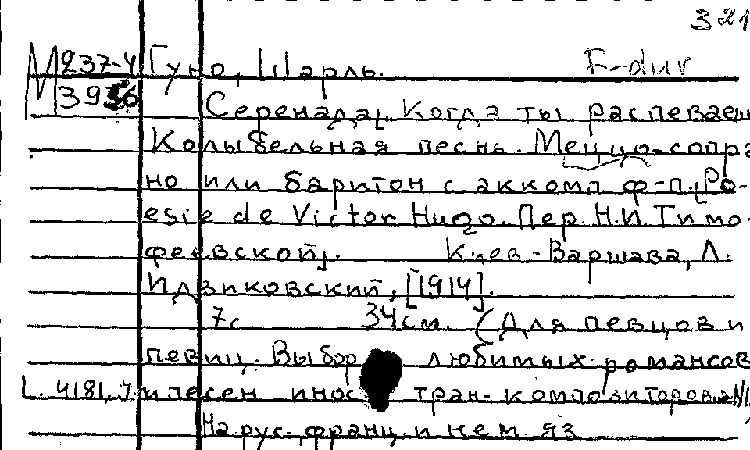 321
М 237-4 Гуно, Шарль. F-dur
39
Серенада, Когда ты распеваеш
Колыбельная песнь. Меццо-сопра
но или баритон с аккомп ф-п. [Po-
esie de Victor Hugo. Пер. Н.И. Тимо-
феевской]. Киев-Варшава, Л.
Идзиковский, [1914].
7с 34см. (Для певцов и
певиц. Выбор любимых романсов
и песен инос тран. композиторов. №
На рус. франц. и нем. яз